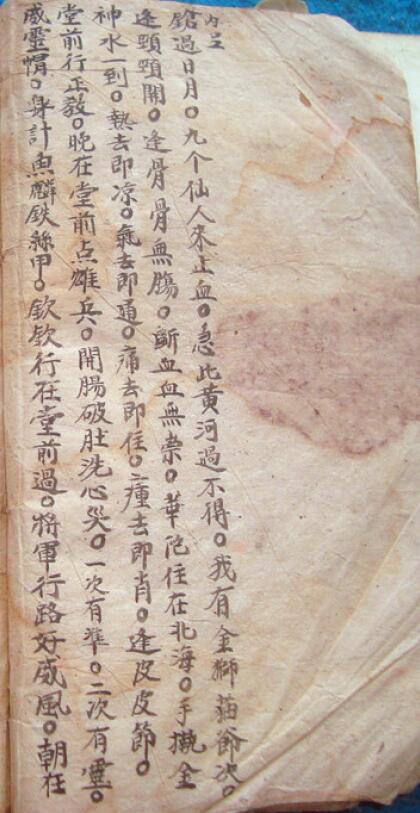 威靈帽。身計魚麟鉄絲甲。欽欽行在堂前過。將軍行路好威風。朝在
堂前行正教。晚在堂前点雄兵。開腸破肚洗心災。一次有準。二次有靈。
神水一到。熱去即凉。氣去即通。痛去即住。瘇去即肖。逢皮皮節。
逢頸頸開。逢骨骨無腸。斷血血無崇。華佗住在北海。手攏金
鎗過日月。九个仙人來止血。急此黄河過不得。我有金獅猫爺次。